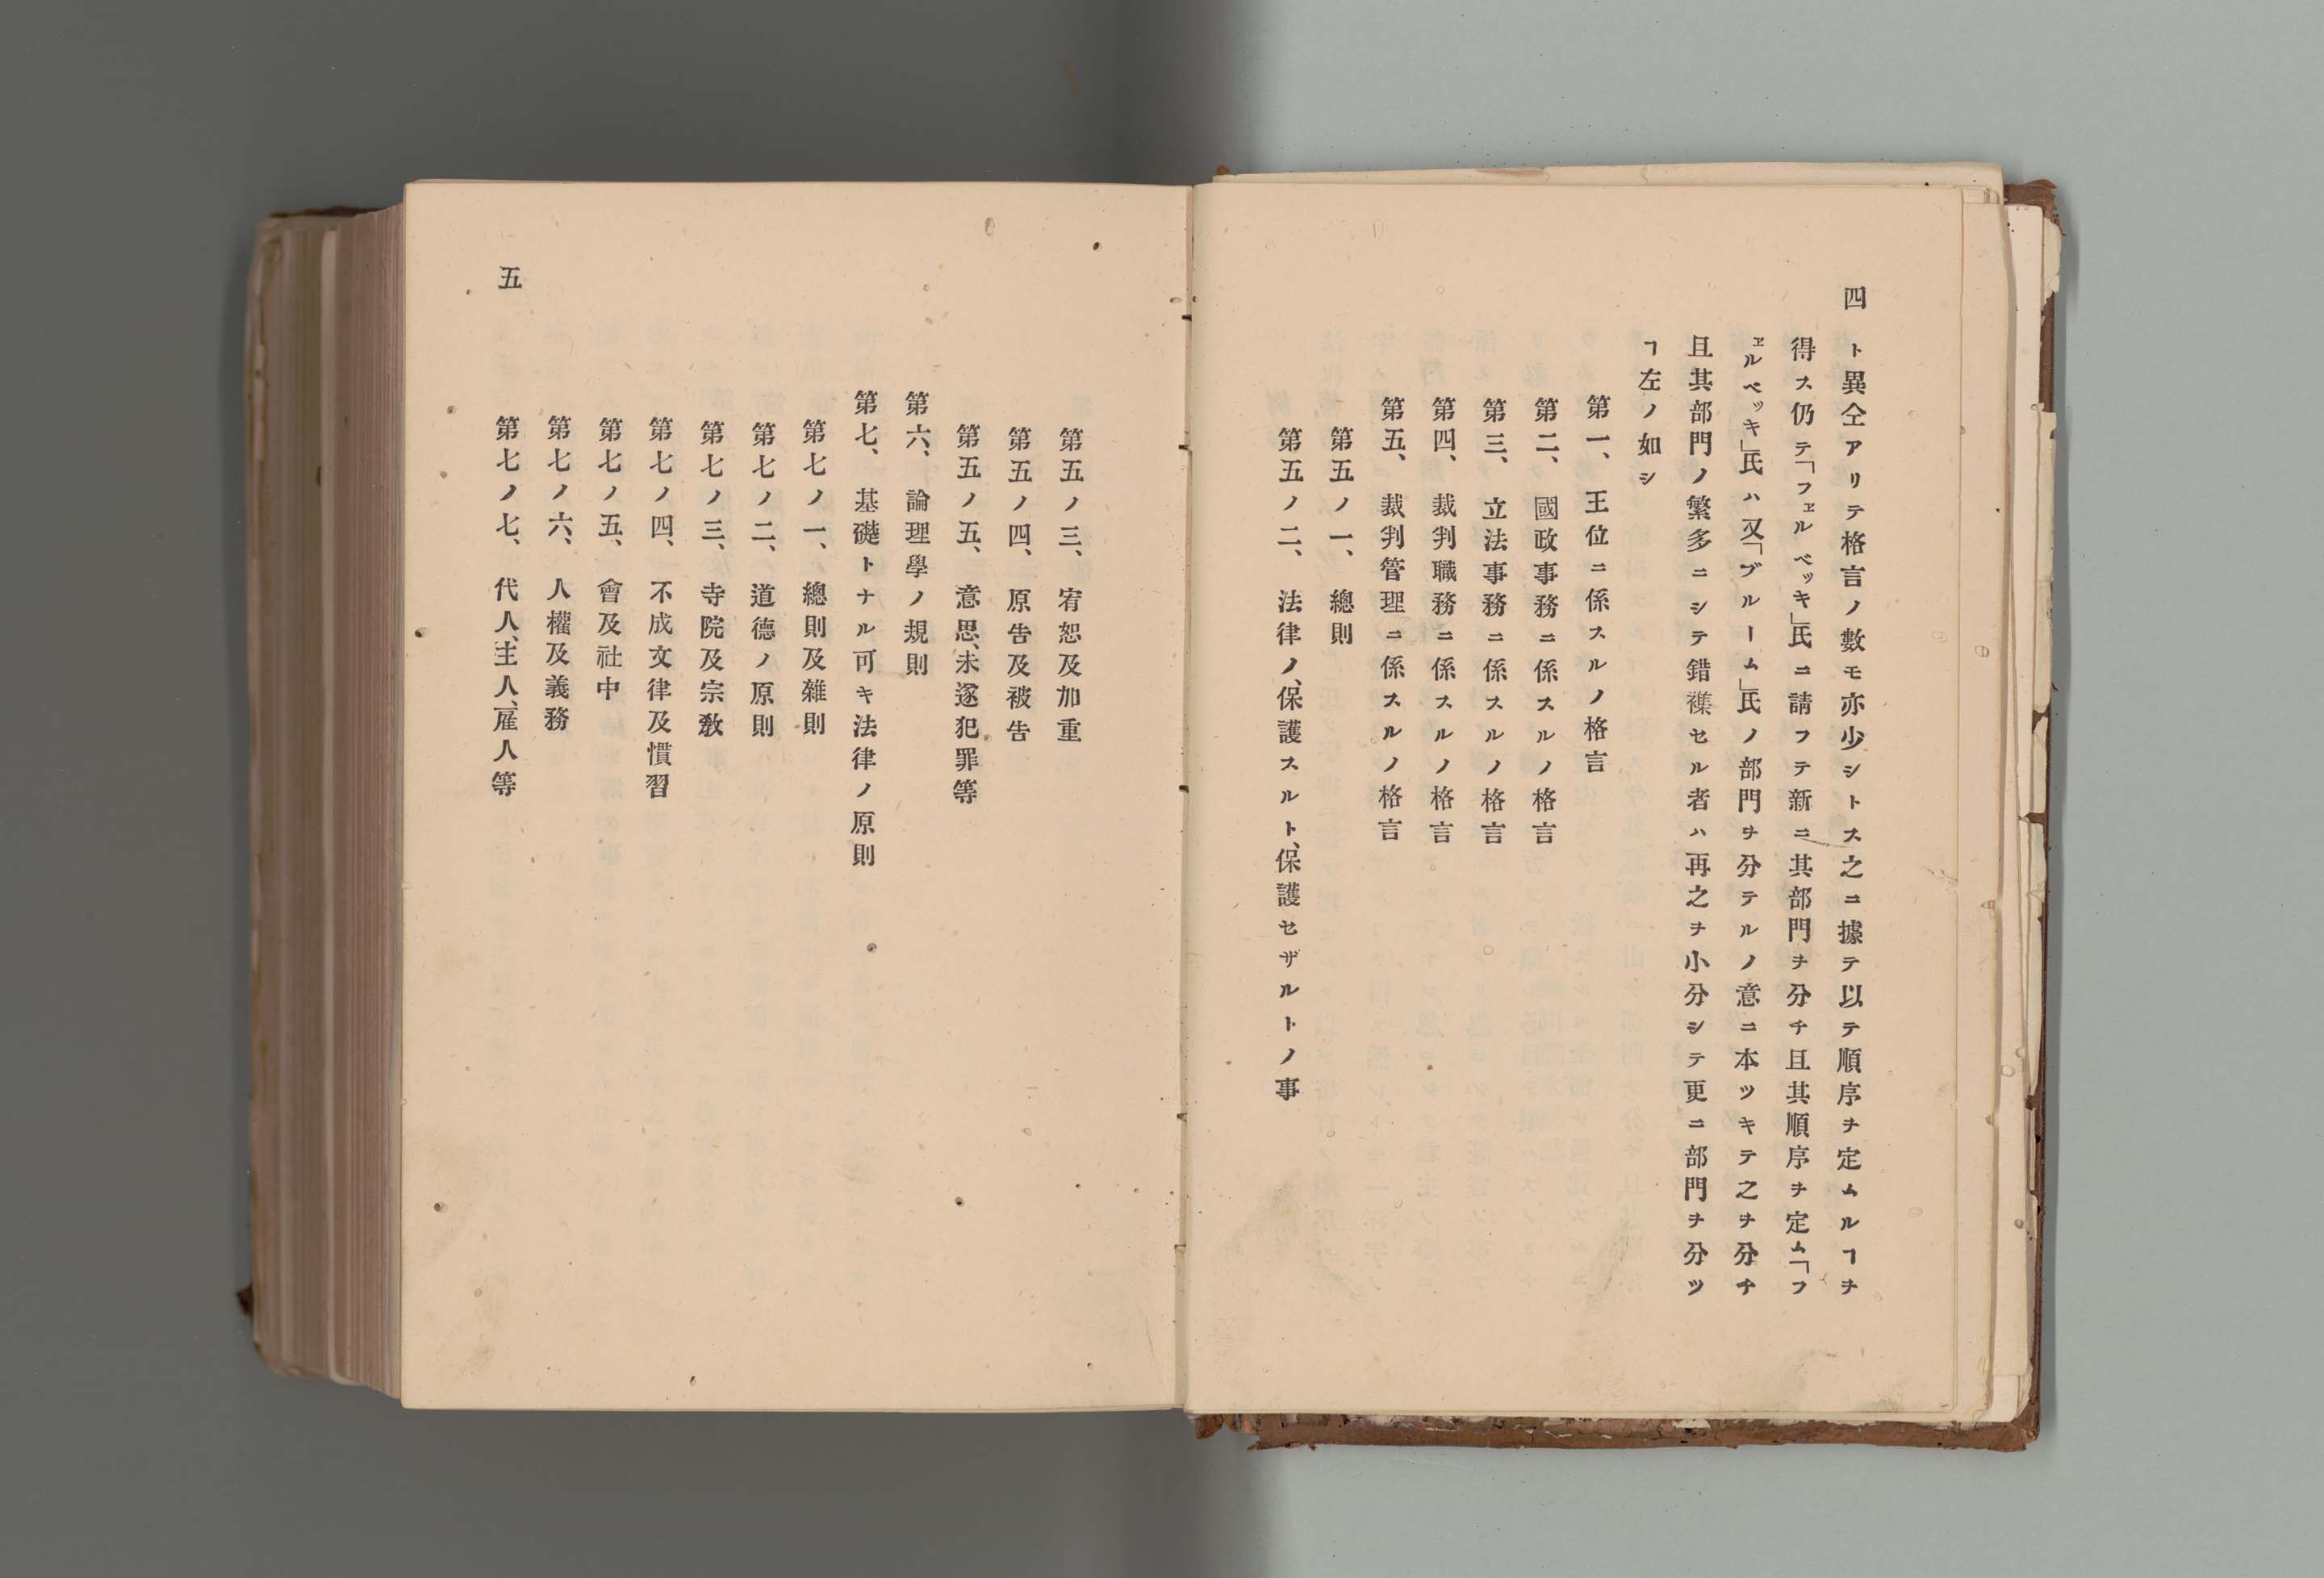 四
ト異仝アリテ格言ノ數モ亦少シトス之ニ據テ以テ順序ヲ定ムルヿヲ
得ス仍テ「フェルベッキ」氏ニ請フテ新ニ其部門ヲ分チ且其順序ヲ定ム「フ
ェルベッキ」氏ハ又「ブルーム」氏ノ部門ヲ分テルノ意ニ本ツキテ之ヲ分チ
且其部門ノ繁多ニシテ錯襍セル者ハ再之ヲ小分シテ更ニ部門ヲ分ツ
ヿ左ノ如シ
第一、王位ニ係スルノ格言
第二、國政事務ニ係スルノ格言
第三、立法事務ニ係スルノ格言
第四、裁判職務ニ係スルノ格言
第五、裁判管理ニ係スルノ格言
第五ノ一、總則
第五ノ二、法律ノ、保護スルト、保護セザルトノ事
第五ノ三、宥恕及加重
第五ノ四、原告及被告
第五ノ五、意思、未遂犯罪等
第六、論理學ノ規則
第七、基礎トナル可キ法律ノ原則
第七ノ一、總則及雜則
第七ノ二、道德ノ原則
第七ノ三、寺院及宗教
第七ノ四、不成文律及慣習
第七ノ五、會及社中
第七ノ六、人權及義務
第七ノ七、代人、主人、雇人等
五